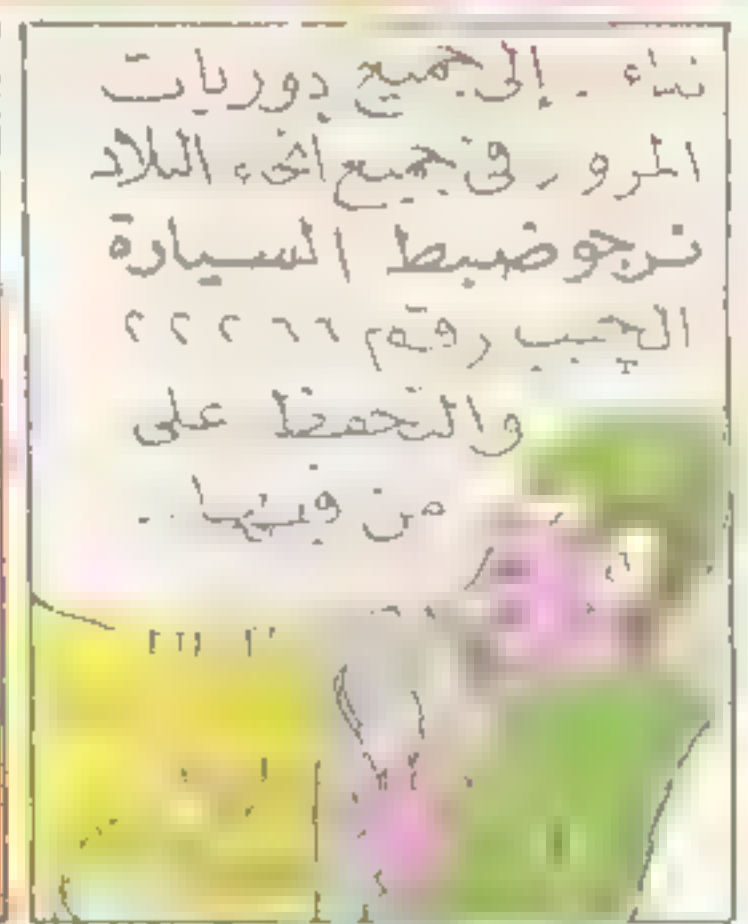 نداء . إلى جميع دوريات
المرور فى جميع انحاء البلاد
نرجو ضبط السيارة
الجيب رقم ٦٦٢٢٢
والتحفظ على
من فيها .